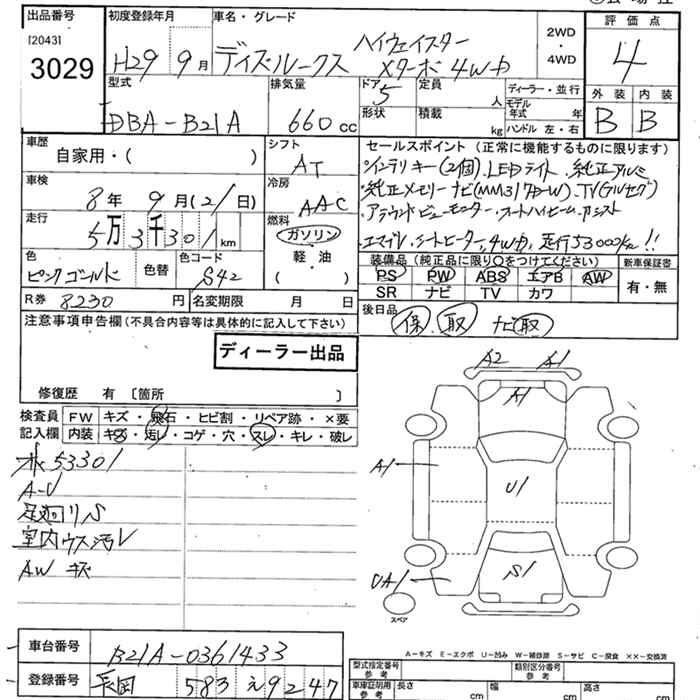 出品番号 初度登録年月 車名・グレード 評価点
[2043]
3029 H29 9月 ディズルークス ハイウェイスター Xターボ 4WD 2WD・4WD 4
型式 排気量 ドア 5 定員 人 ディーラー・並行 外装 内装
DBA-B21A 660cc 形状 積載 kg モデル年式 年 ハンドル 左・右 B B
車歴 シフト セールスポイント(正常に機能するものに限ります)
自家用・( ) AT ・インテリキー(2個)、LEDライト、純正アルミ
車検 冷房 ・純正メモリーナビ(MM317D-W)、TV(フルセグ)
8年 9月(21日) AAC ・アラウンドビューモニター、オートハイビーム、アシスト
走行 5万3千301km 燃料 ・エマブレ、シートヒーター、4WD、走行53000km!!
ガソリン・軽油・( )
色 ピンクゴールド 色替 色コード S42
装備品(純正品に限り○をつけてください) 新車保証書
PS PW ABS エアB AW 有・無
SR ナビ TV カワ
R券 8230円 名変期限 月 日
後日品 保 取 ナビ取
注意事項申告欄(不具合内容等は具体的に記入して下さい)
ディーラー出品
修復歴 有 [箇所 ]
A2 A1
A1
検査員記入欄 FW キズ・飛石・ヒビ割・リペア跡・×要
内装 キズ・汚レ・コゲ・穴・スレ・キレ・破レ
53301
A-U
足廻りS
室内ウス汚レ
AW キズ
A1
U1
UA1
S1
スペア
A-キズ E-エクボ U-凹み W-補修跡 S-サビ C-腐食 XX-交換済
車台番号 B21A-0361433
登録番号 長岡 583 え 9247
型式指定番号 参考 類別区分番号 参考
車庫証明用 参考 長さ cm 幅 cm 高さ cm